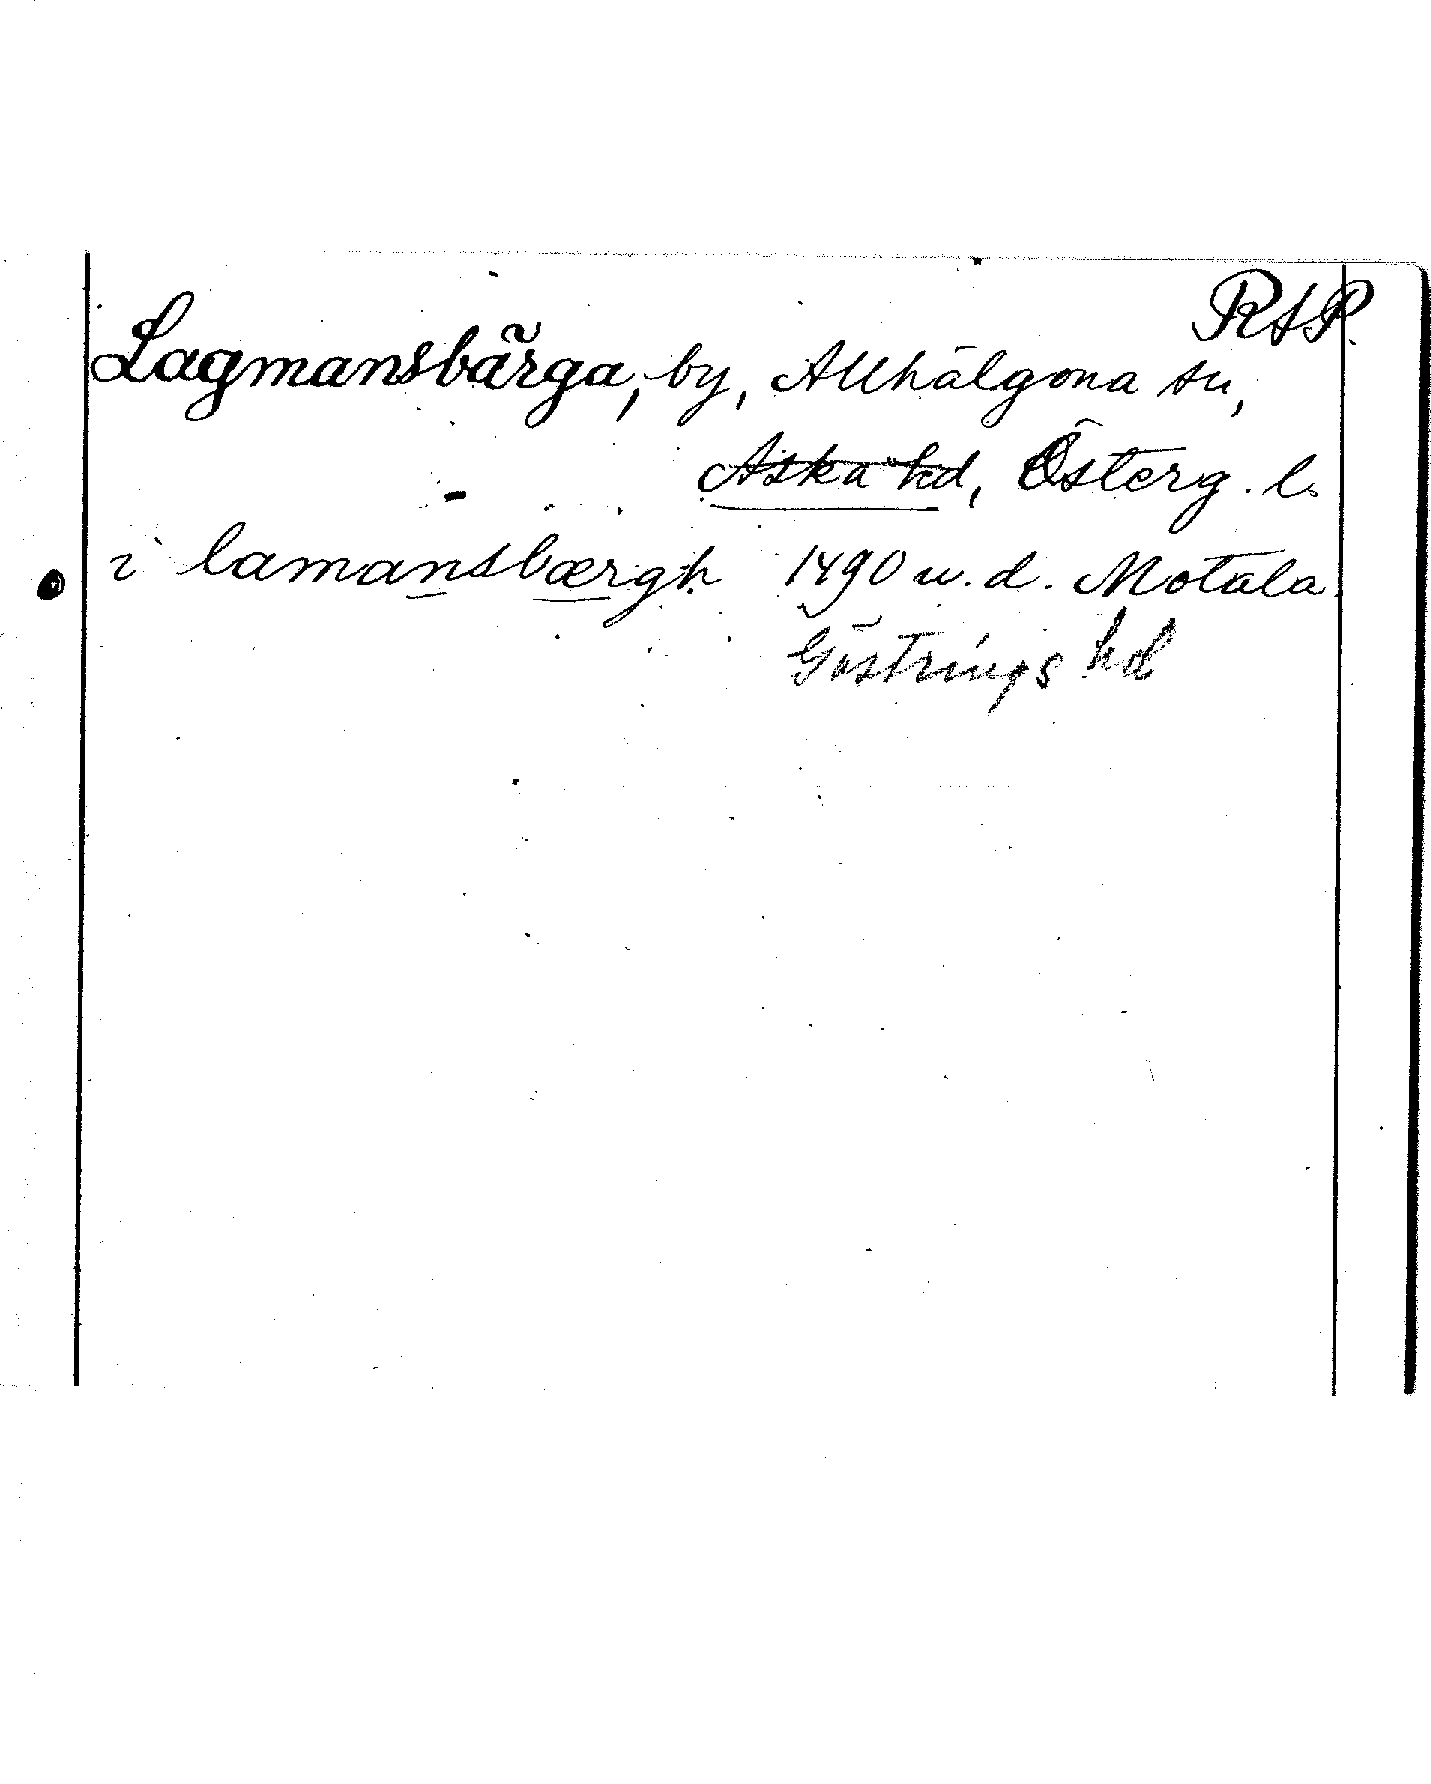 RAP.
Lagmansbärga, by, Allhälgona sn,
Aska hd, Österg. l.
i lamansbærgh 1490 u. d. Motala
Göstrings hd